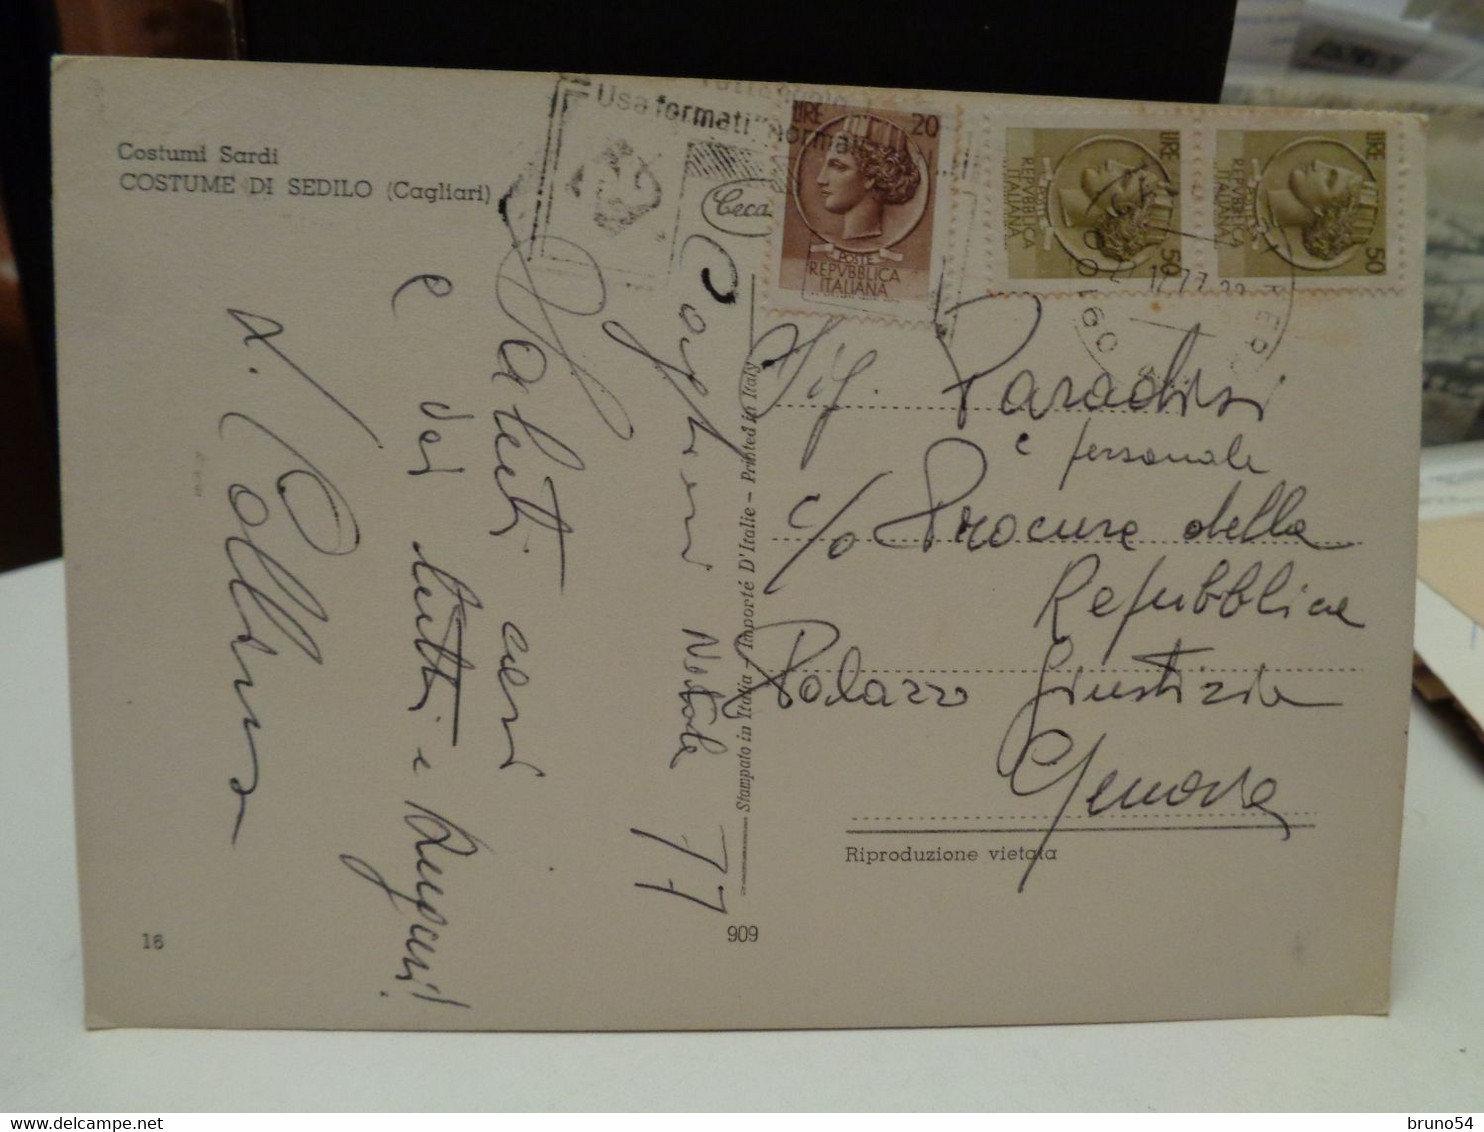 Costumi Sardi
COSTUME DI SEDILO (Cagliari)
Usa formati "normali"
Ceca
LIRE 20
POSTE
REPVBBLICA
ITALIANA
LIRE 50
POSTE
REPVBBLICA
ITALIANA
LIRE 50
POSTE
REPVBBLICA
ITALIANA
Cagliari Natale 77
Saluti cari
e dei tutti e Auguri!
Sig. Paradisi
e personale
c/o Procura della
Repubblica
Palazzo Giustizia
Genova
Stampato in Italia - Importé D'Italie - Printed in Italy
Riproduzione vietata
16
909
bruno54